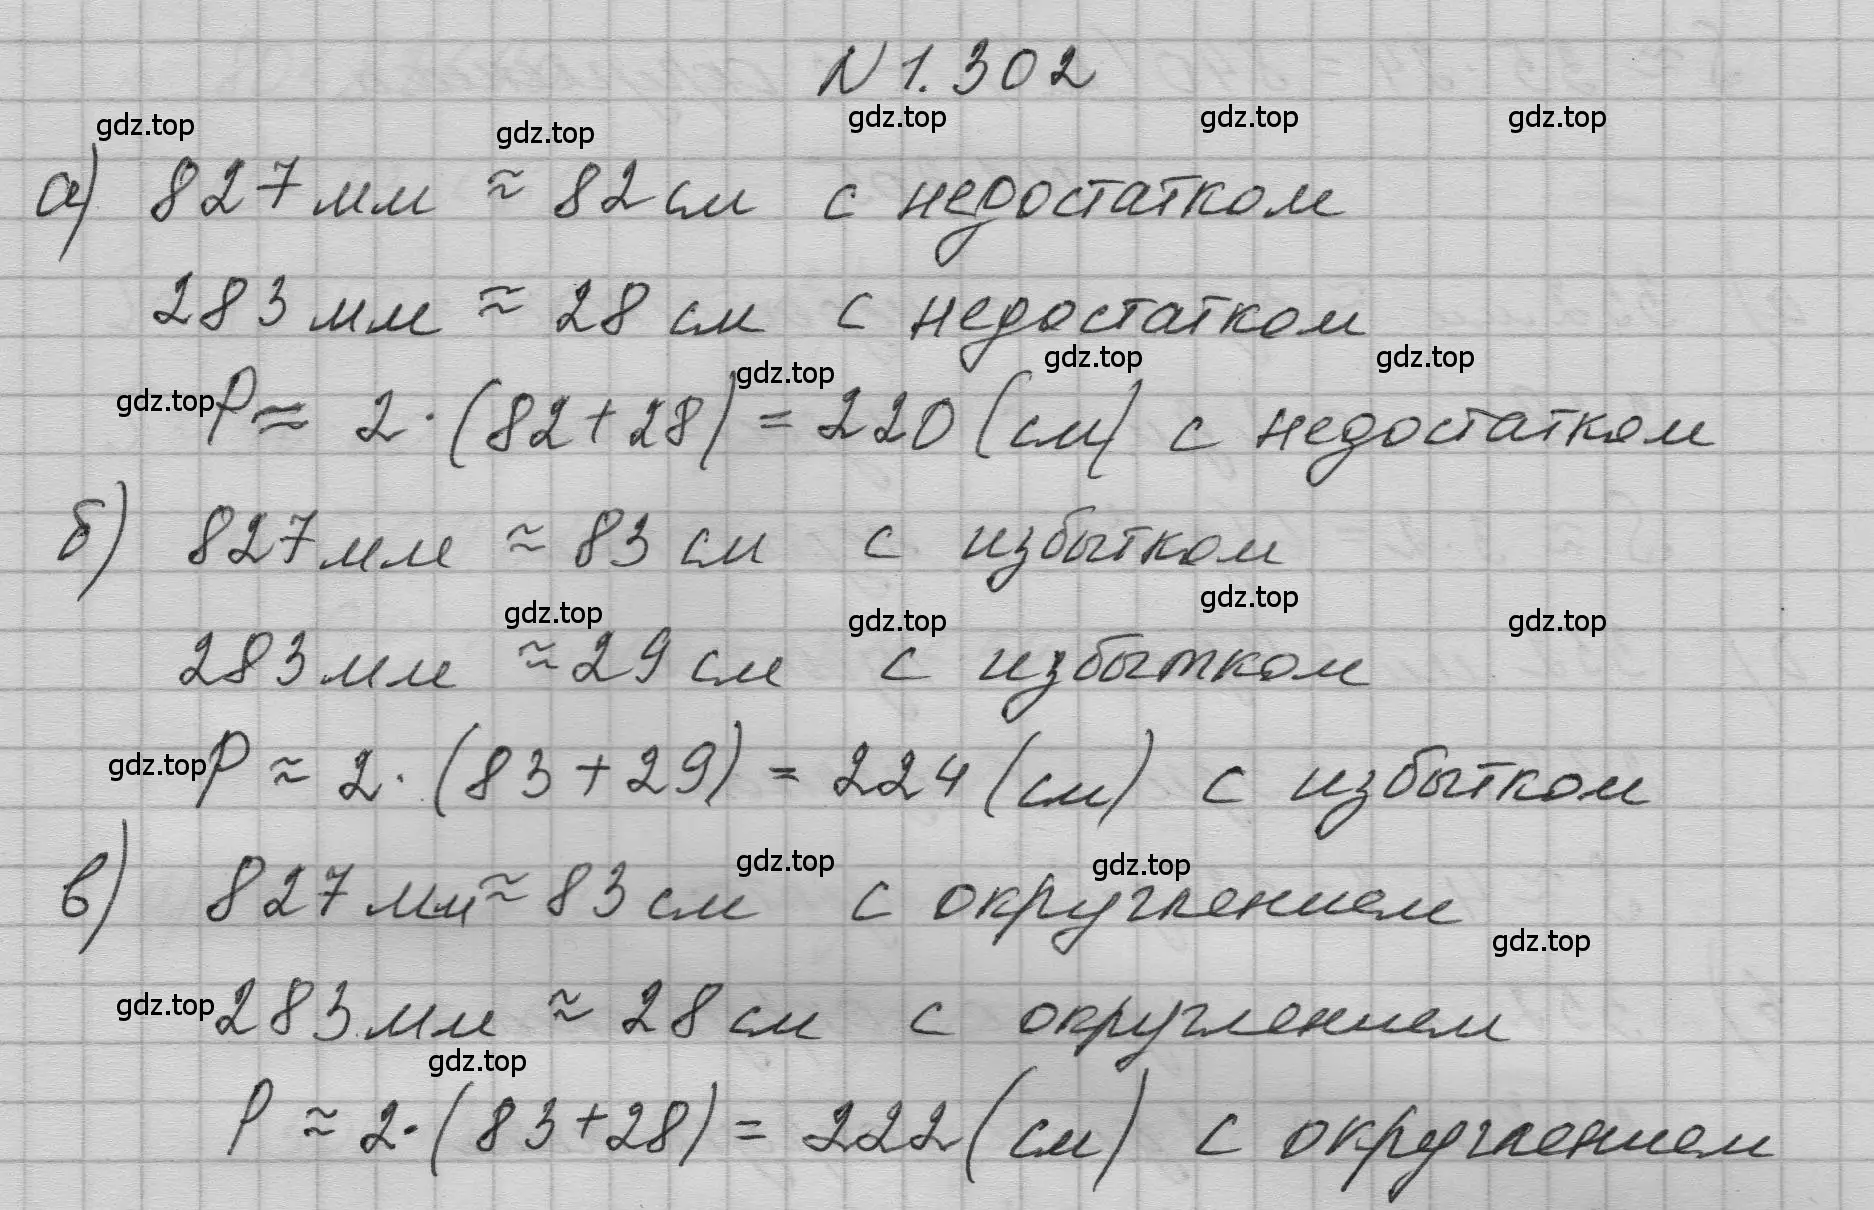 N 1.302
gdz.top gdz.top gdz.top gdz.top gdz.top
а) 827 мм ≈ 82 см с недостатком
283 мм ≈ 28 см с недостатком
gdz.top gdz.top gdz.top gdz.top
P ≈ 2 · (82 + 28) = 220 (см) с недостатком
б) 827 мм ≈ 83 см с избытком
gdz.top gdz.top gdz.top gdz.top
283 мм ≈ 29 см с избытком
gdz.top P ≈ 2 · (83 + 29) = 224 (см) с избытком
gdz.top gdz.top
в) 827 мм ≈ 83 см с округлением
gdz.top
gdz.top 283 мм ≈ 28 см с округлением
gdz.top
P ≈ 2 · (83 + 28) = 222 (см) с округлением